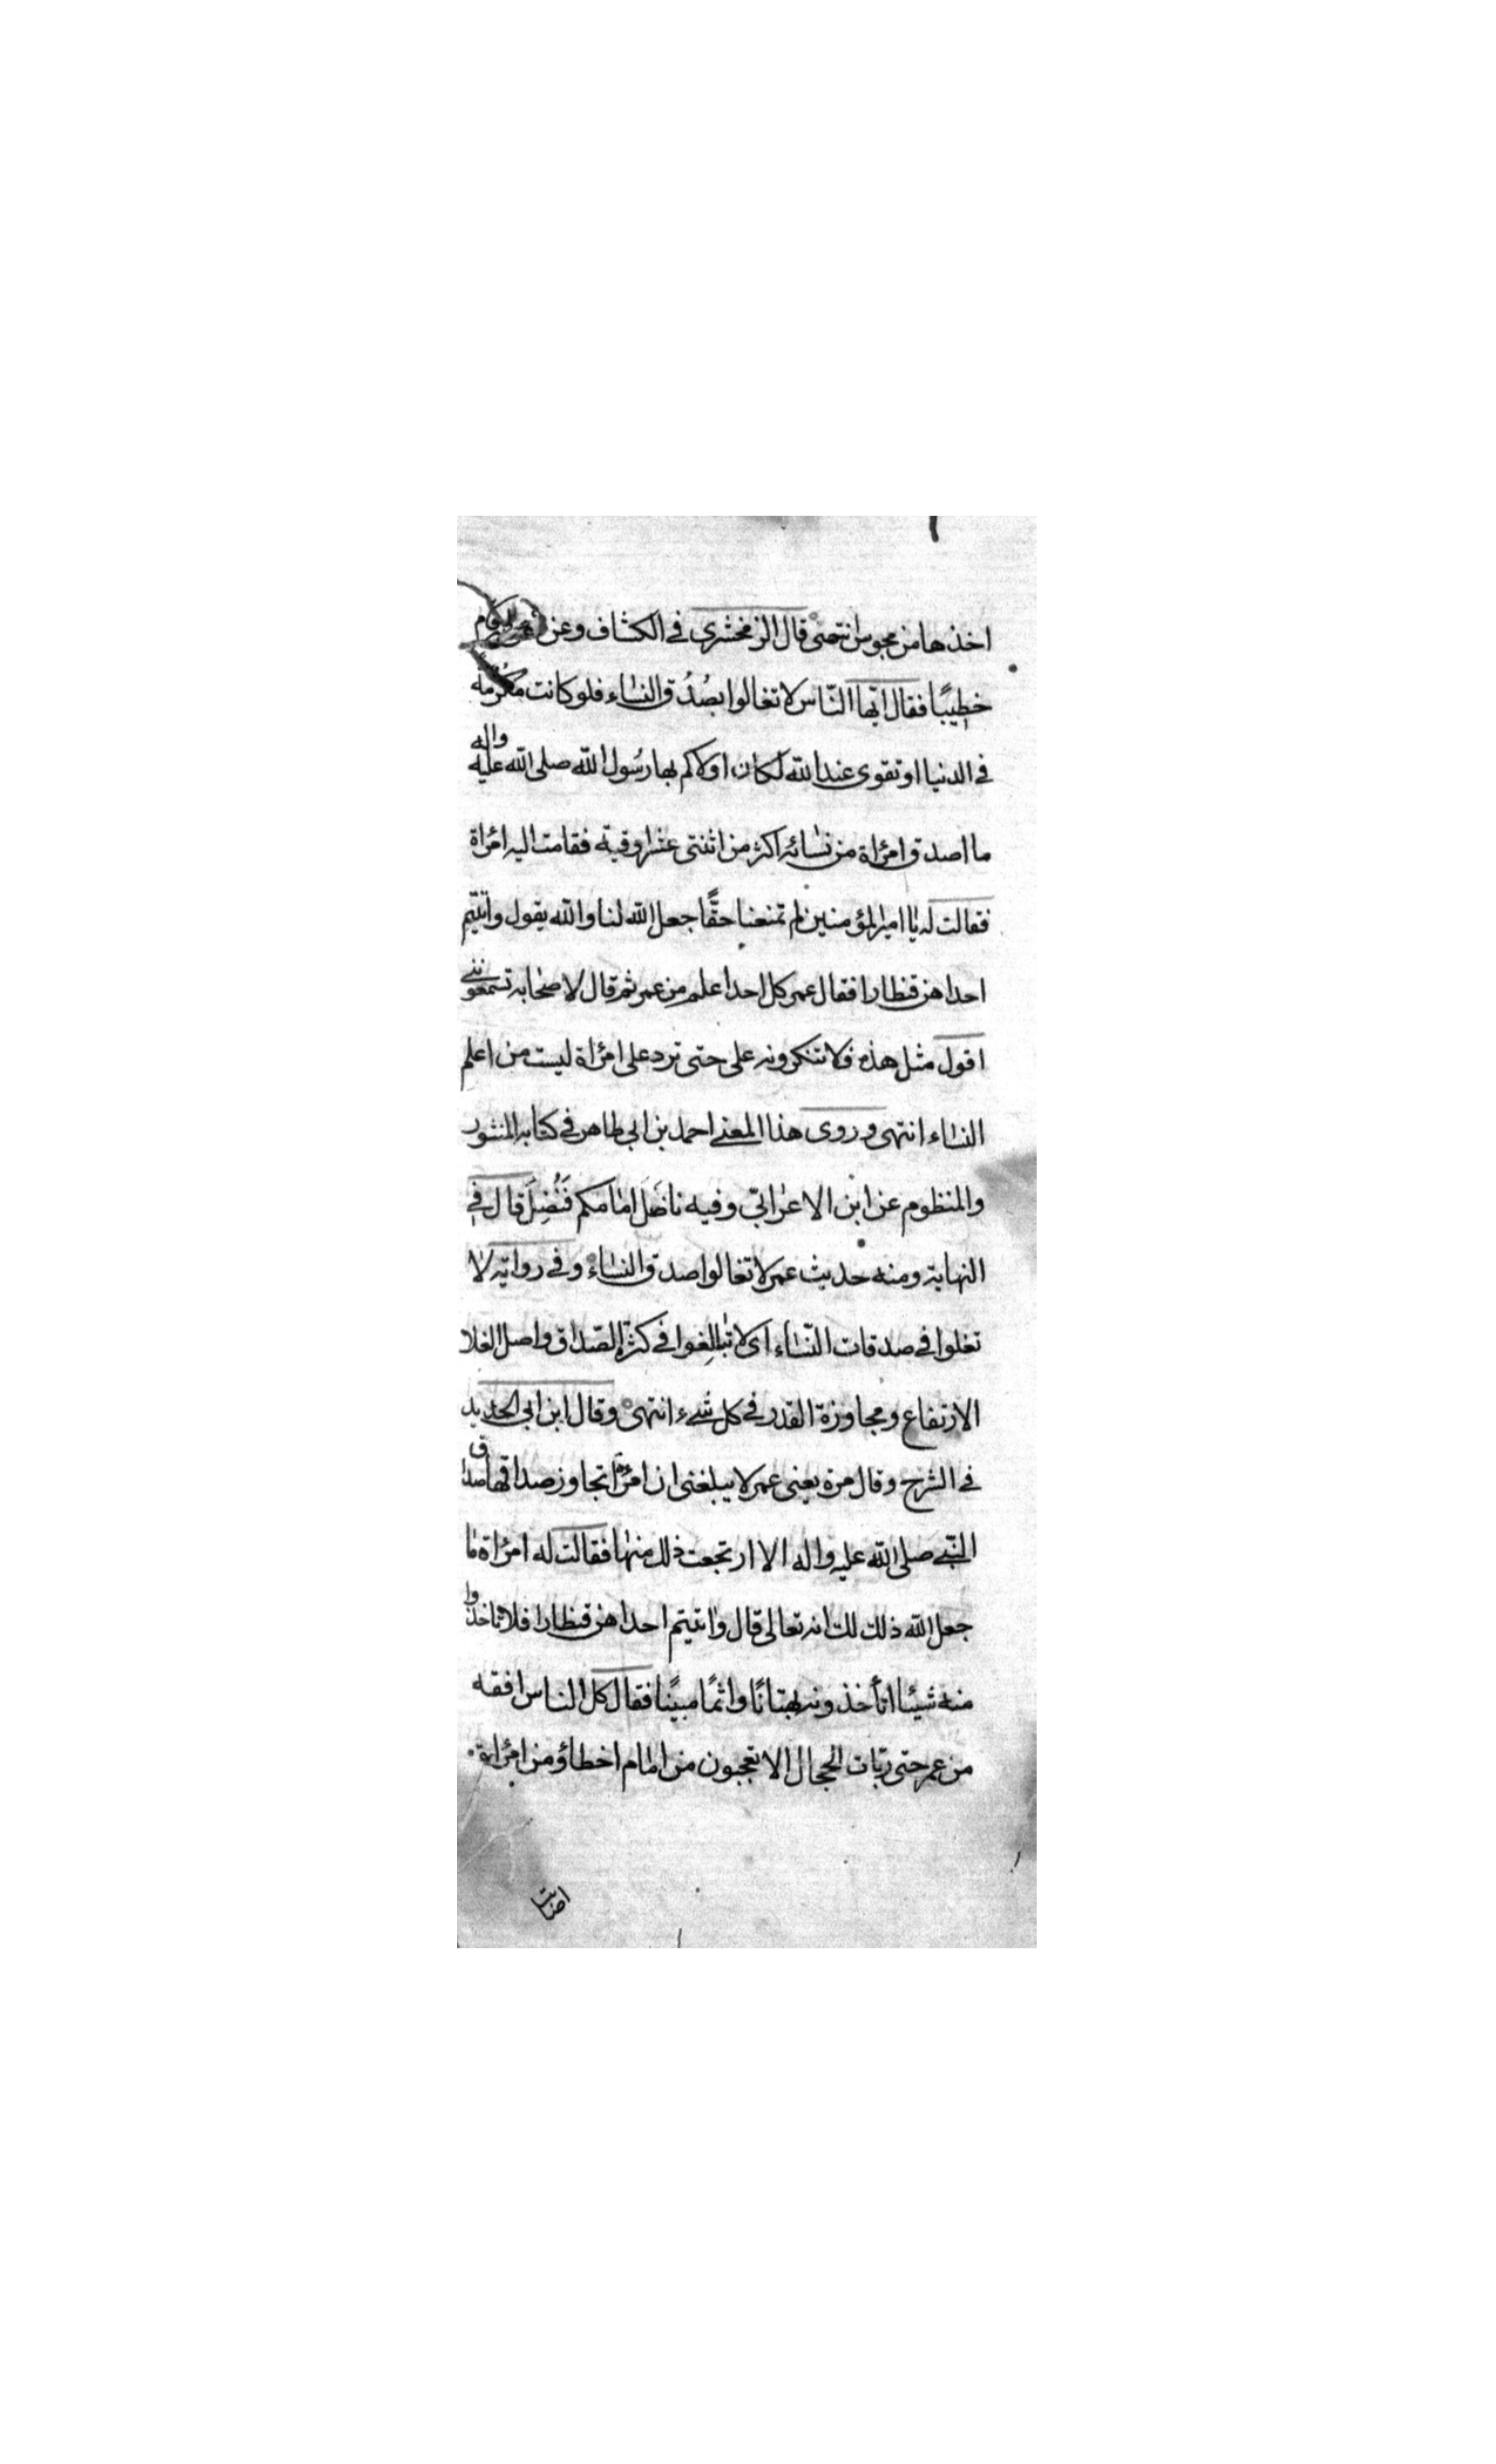 اخذها من مجوس انتهى قال الزمخشري في الكشاف وعن عمر انه قام
خطيبًا فقال ايّها النّاس لا تغالوا بصُدُق النساء فلو كانت مكرُمة
في الدنيا او تقوى عند الله لكان اولاكم بها رسُول الله صلى الله عليه واله
ما اصدق امرأة من نسائه اكثر من اثنتى عشر اوقية فقامت اليه امرأة
فقالت له يا امير المؤمنين لم تمنعنا حقًّا جعل الله لنا والله يقول واتيتم
احداهن قنطارا فقال عمر كل احد اعلم من عمر ثم قال لاصحابه تسمعوننى
اقول مثل هذه فلا تنكرونه على حتى ترد على امرأة ليست من اعلم
النساء انتهى وروى هذا المعنى احمد بن ابي طاهر في كتابه المنثور
والمنظوم عن ابن الاعرابيّ وفيه ناضَلَ امامكم فَنُضِلَ قال في
النهاية ومنه حديث عمر لا تغالوا صدق النساء وفي رواية لا
تغلوا في صدقات النّساء اى لا تبالغوا في كثرة الصّداق واصل الغلا
الارتفاع ومجاوزة القدر في كل شىء انتهى وقال ابن ابي الحديد
في الشرح وقال مرة يعنى عمر لا يبلغنى ان امرأة تجاوز صداقها صداق
النبّي صلى الله عليه واله الا ارتجعت ذلك منها فقالت له امرأة ما
جعل الله ذلك لك انه تعالى قال واتيتم احداهن قنطارا فلا تاخذوا
منه شيئا اتأخذونه بهتانًا واثمًا مبينًا فقال كل الناس افقه
من عمر حتى ربّات الحجال الا تعجبون من امام اخطأ ومن امرأة
اصابت